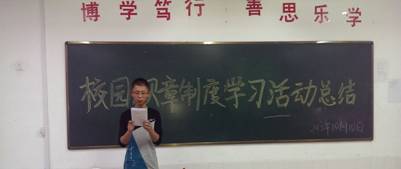 博学笃行 善思乐学
校园规章制度学习活动总结